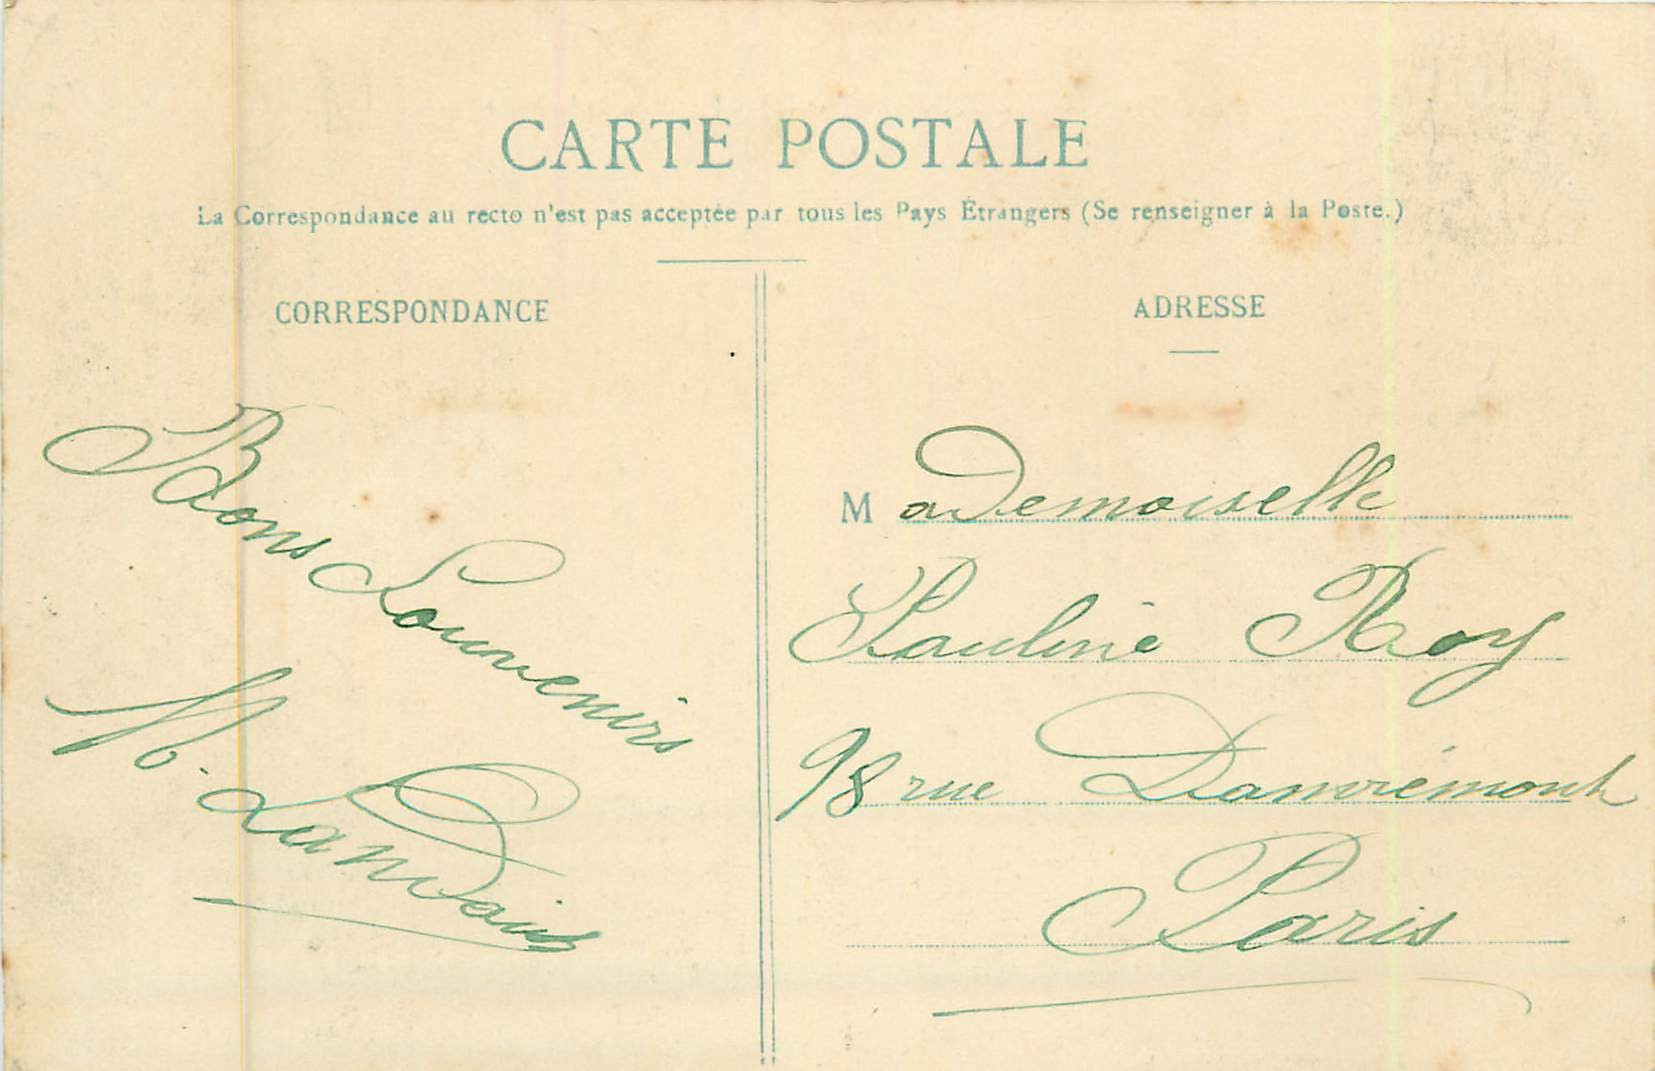 CARTE POSTALE
La Correspondance au recto n'est pas acceptée par tous les Pays Étrangers (Se renseigner à la Poste.)
CORRESPONDANCE
Bons Souvenirs
M. Landais
ADRESSE
Mademoiselle
Pauline Roy
98 rue Damrémont
Paris